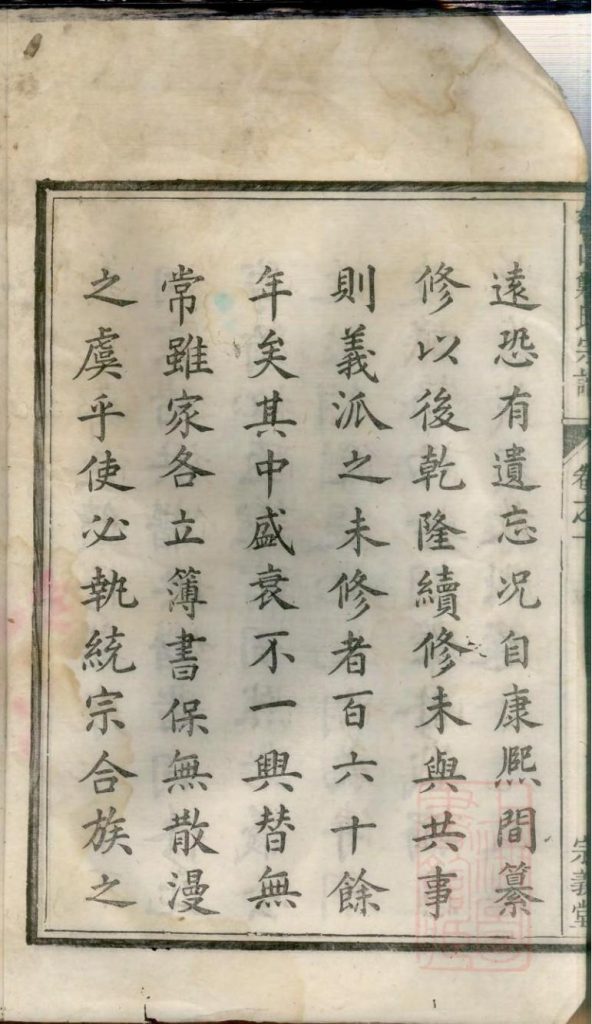 氏宗譜
卷之一
宗義堂
遠恐有遺忘况自康熈間纂
修以後乾隆續修未與共事
則義派之未修者百六十餘
年矣其中盛衰不一興替無
常雖家各立簿書保無散漫
之虞乎使必執統宗合族之